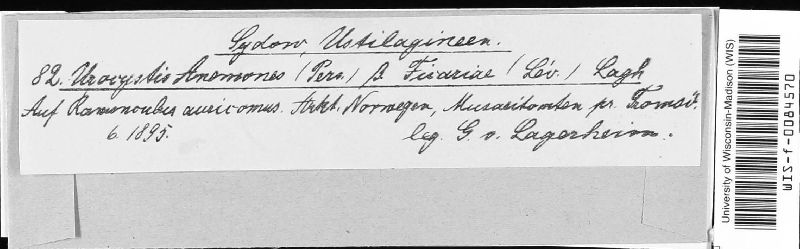 Sydow, Ustilagineen.
82. Urocystis Anemones (Pers.) β. Ficariae (Lév.) Lagh
Auf Ranunculus auricomus. Arkt. Norwegen, pr. Tromsö.
6. 1895. leg. G. v. Lagerheim.
University of Wisconsin-Madison (WIS)
WIS-f-0084570